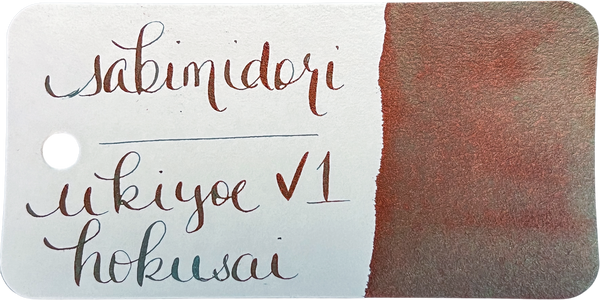 sabimidori
ukiyoe v1
hokusai